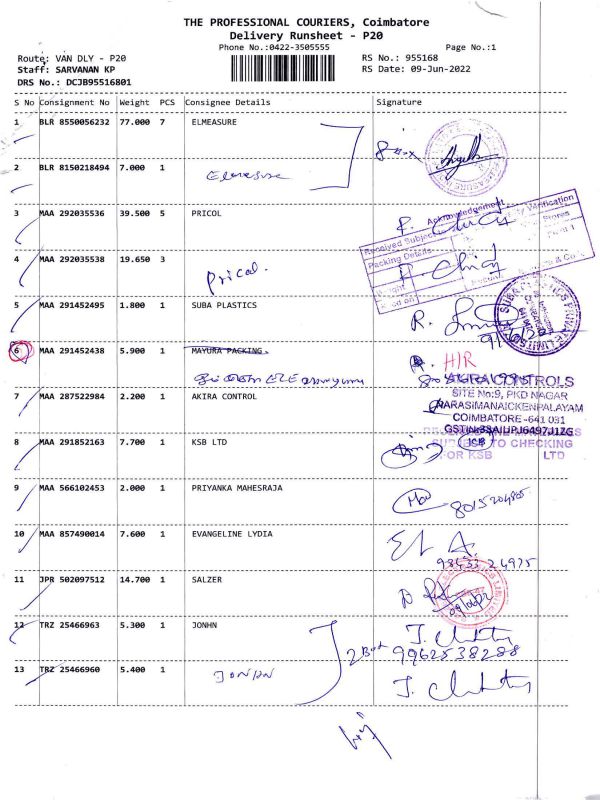 THE PROFESSIONAL COURIERS, Coimbatore
Delivery Runsheet - P20
Phone No.:0422-3505555
Page No.:1
Route: VAN DLY - P20
RS No.: 955168
Staff: SARVANAN KP
RS Date: 09-Jun-2022
DRS No.: DCJB95516801
S No Consignment No Weight PCS Consignee Details Signature
1 BLR 8550056232 77.000 7 ELMEASURE
2 BLR 8150218494 7.000 1
Elmeasure
3 MAA 292035536 39.500 5 PRICOL
Acknowledgement
Received Subject to Verification
Packing Details Stores
4 MAA 292035538 19.650 3
Prical.
5 MAA 291452495 1.800 1 SUBA PLASTICS
6 MAA 291452438 5.900 1 MAYURA PACKING.
H/R
7 MAA 287522984 2.200 1 AKIRA CONTROLS
AKIRA CONTROLS
SITE No:9, PKD NAGAR
NARASIMANAICKENPALAYAM
COIMBATORE -641 031
8 MAA 291852163 7.700 1 KSB LTD
SUBJECT TO CHECKING
FOR KSB LTD
9 MAA 566102453 2.000 1 PRIYANKA MAHESRAJA
8015204805
10 MAA 857490014 7.600 1 EVANGELINE LYDIA
11 JPR 502097512 14.700 1 SALZER
12 TRZ 25466963 5.300 1 JONHN
2 Box
9962538288
13 TRZ 25466960 5.400 1
JONHN